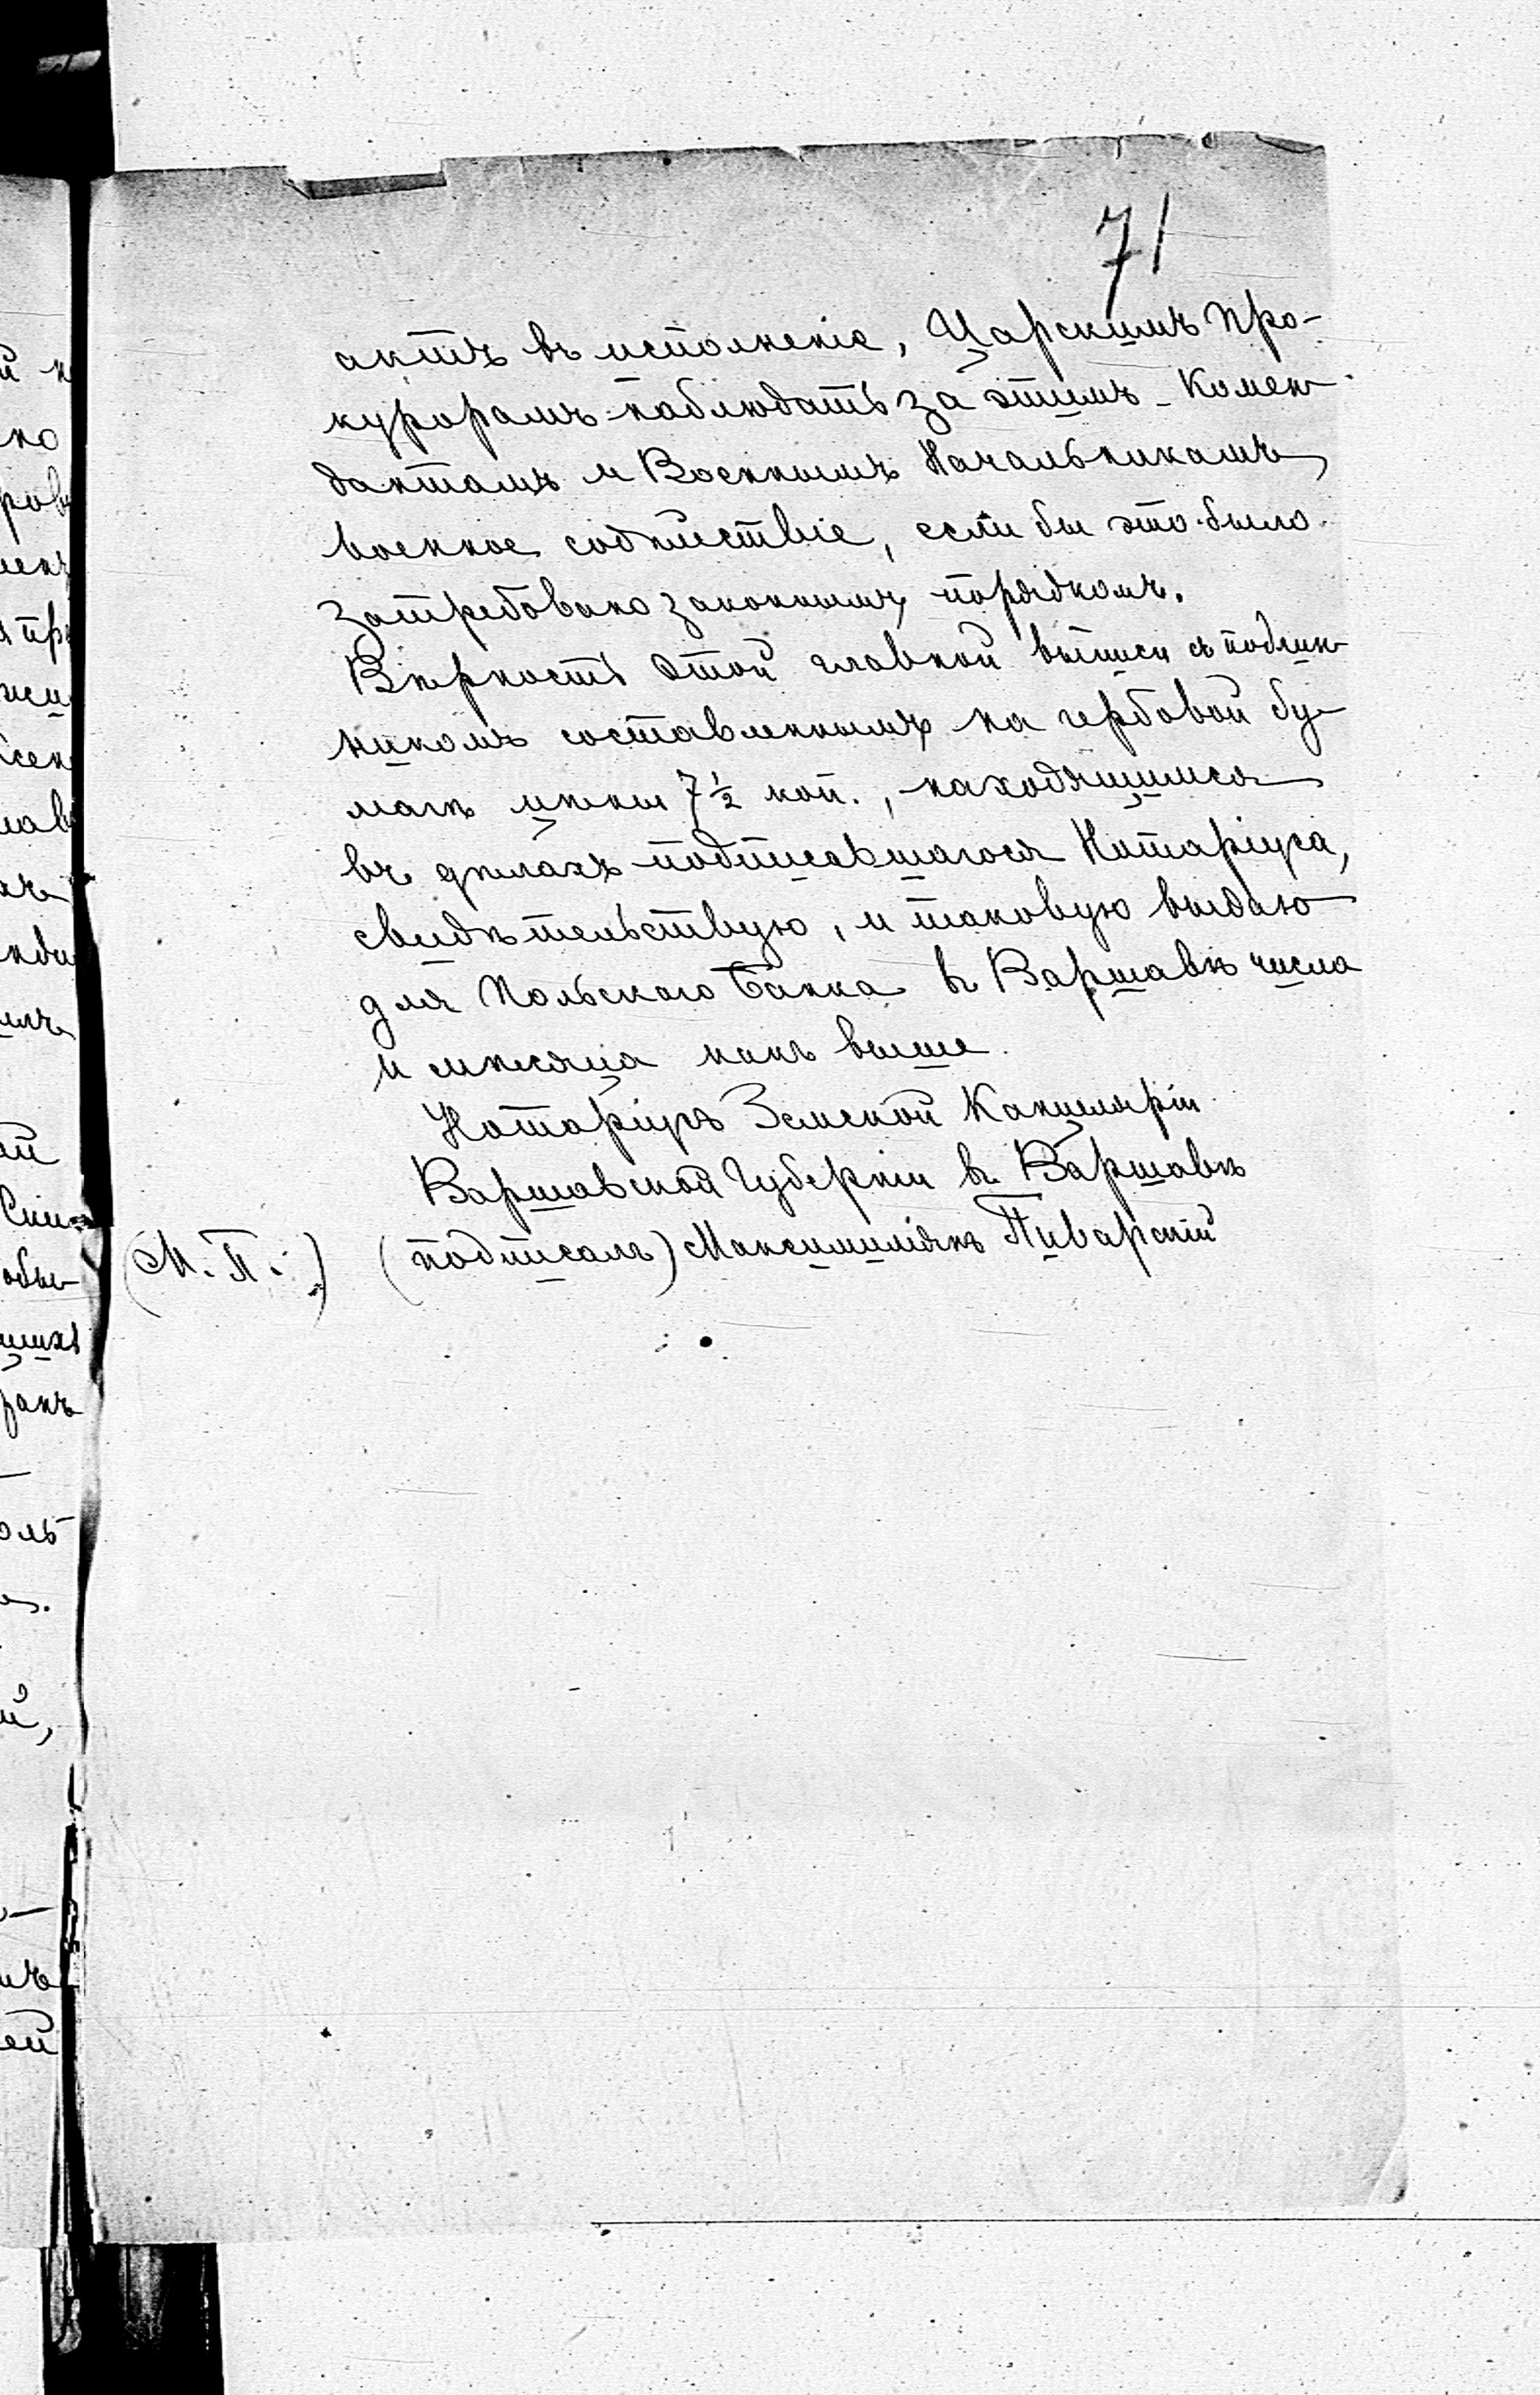 71
актъ въ исполненіе, Царскимъ Про-
курорамъ наблюдать за этимъ - Комен-
дантамъ и Военнымъ Начальникамъ,
военное содѣйствіе, если бы это было
затребовано законнымъ порядкомъ.
Вѣрность этой главной выписи съ подлин-
никомъ составленнымъ на гербовой бу-
магѣ цѣны 7½ коп., находящимся
въ дѣлахъ подписавшагося Нотаріуса,
свидѣтельствую, и таковую выдаю
для Польскаго Банка въ Варшавѣ числа
и мѣсяца какъ выше.
Нотаріусъ Земской Канцеляріи
Варшавской Губерніи въ Варшавѣ
(М. П.) (подписалъ) Максимиліянъ Пиварскій